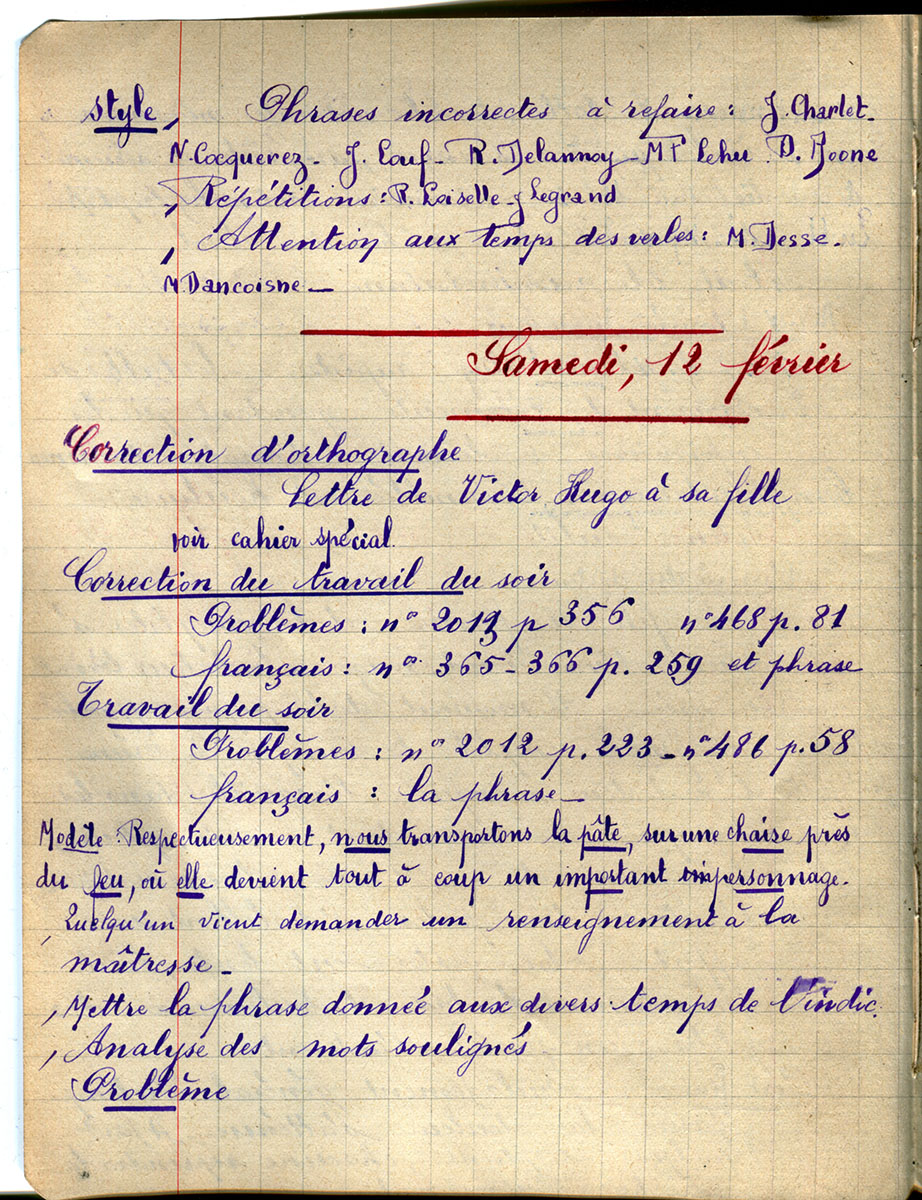 style, Phrases incorrectes à refaire : J. Charlet_
N. Cocquerez_ J. Louf_ R. Delannoy_ MT Lehu. D. Joone
, Répétitions : R. Loiselle_ J Legrand
, Attention aux temps des verbes : M. Desse_
M Dancoisne_
Samedi, 12 février
Correction d'orthographe
Lettre de Victor Hugo à sa fille
voir cahier spécial.
Correction du travail du soir
Problèmes : n° 2013 p 356 n° 468 p. 81
français : nos 365_366 p. 259 et phrase
Travail du soir
Problèmes : n° 2012 p. 223_ n° 486 p. 58
français : la phrase_
Modèle : Respectueusement, nous transportons la pâte, sur une chaise près
du feu, où elle devient tout à coup un important personnage.
, Quelqu'un vient demander un renseignement à la
maîtresse_
, Mettre la phrase donnée aux divers temps de l'indic.
, Analyse des mots soulignés
Problème